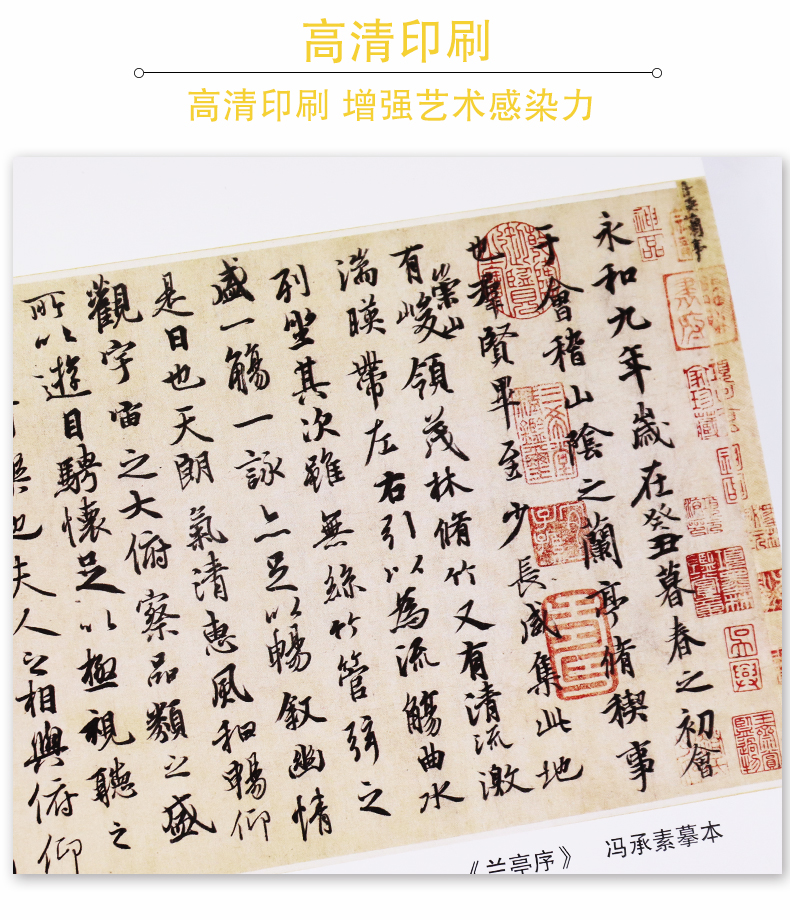 高清印刷
高清印刷 增强艺术感染力
永和九年歲在癸丑暮春之初會
于會稽山陰之蘭亭脩稧事
也羣賢畢至少長咸集此地
有崇山峻領茂林脩竹又有清流激
湍暎帶左右引以為流觴曲水
列坐其次雖無絲竹管弦之
盛一觴一詠亦足以暢敘幽情
是日也天朗氣清惠風和暢仰
觀宇宙之大俯察品類之盛
所以遊目騁懷足以極視聽之
也夫人之相與俯仰
《兰亭序》 冯承素摹本